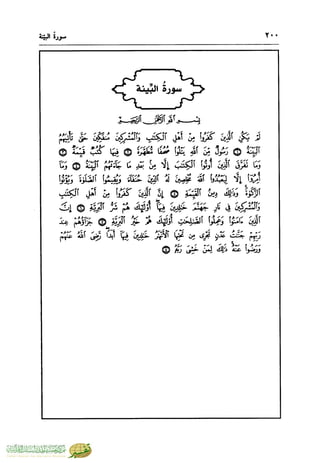 ٢٠٠
سورة البينة
سورة البينة
بسم الله الرحمن الرحيم
لم يكن الذين كفروا من أهل الكتب والمشركين منفكين حتى تأتيهم
البينة ١ رسول من الله يتلوا صحفا مطهرة ٢ فيها كتب قيمة ٣
وما تفرق الذين أوتوا الكتب إلا من بعد ما جاءتهم البينة ٤ وما
أمروا إلا ليعبدوا الله مخلصين له الدين حنفاء ويقيموا الصلوة ويؤتوا
الزكوة وذلك دين القيمة ٥ إن الذين كفروا من أهل الكتب
والمشركين في نار جهنم خلدين فيها أولئك هم شر البرية ٦ إن
الذين ءامنوا وعملوا الصلحت أولئك هم خير البرية ٧ جزاؤهم عند
ربهم جنت عدن تجري من تحتها الأنهر خلدين فيها أبدا رضي الله عنهم
ورضوا عنه ذلك لمن خشي ربه ٨